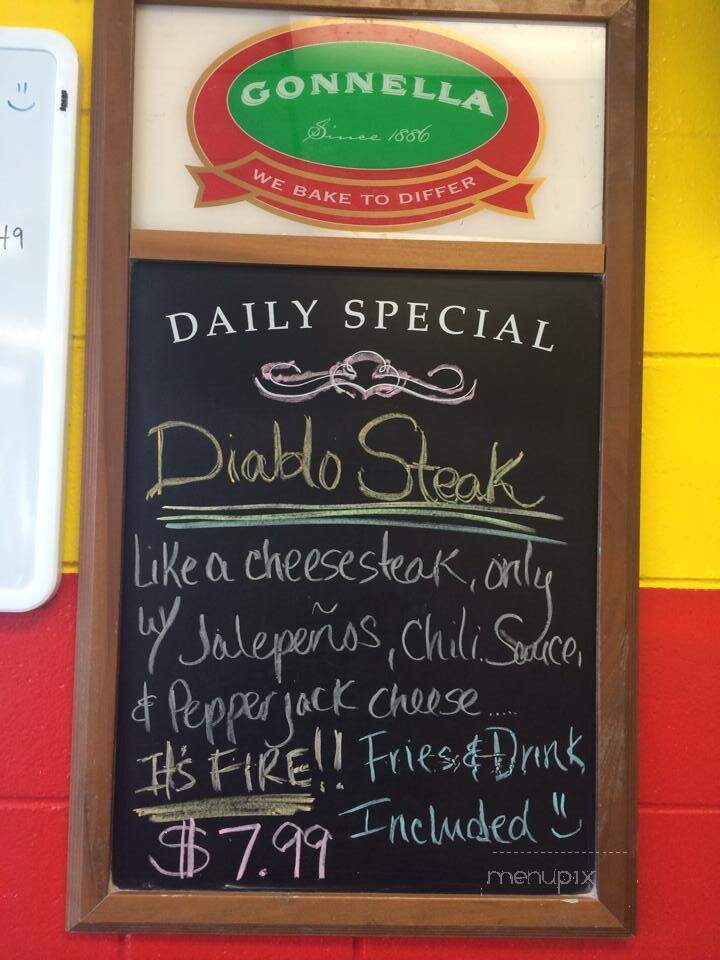 GONNELLA
Since 1886
WE BAKE TO DIFFER
49
DAILY SPECIAL
Diablo Steak
Like a cheesesteak, only
w/ Jalepeños, Chili Sauce,
& Pepper jack cheese.....
It's FIRE!! Fries & Drink
Included
$7.99
menupix